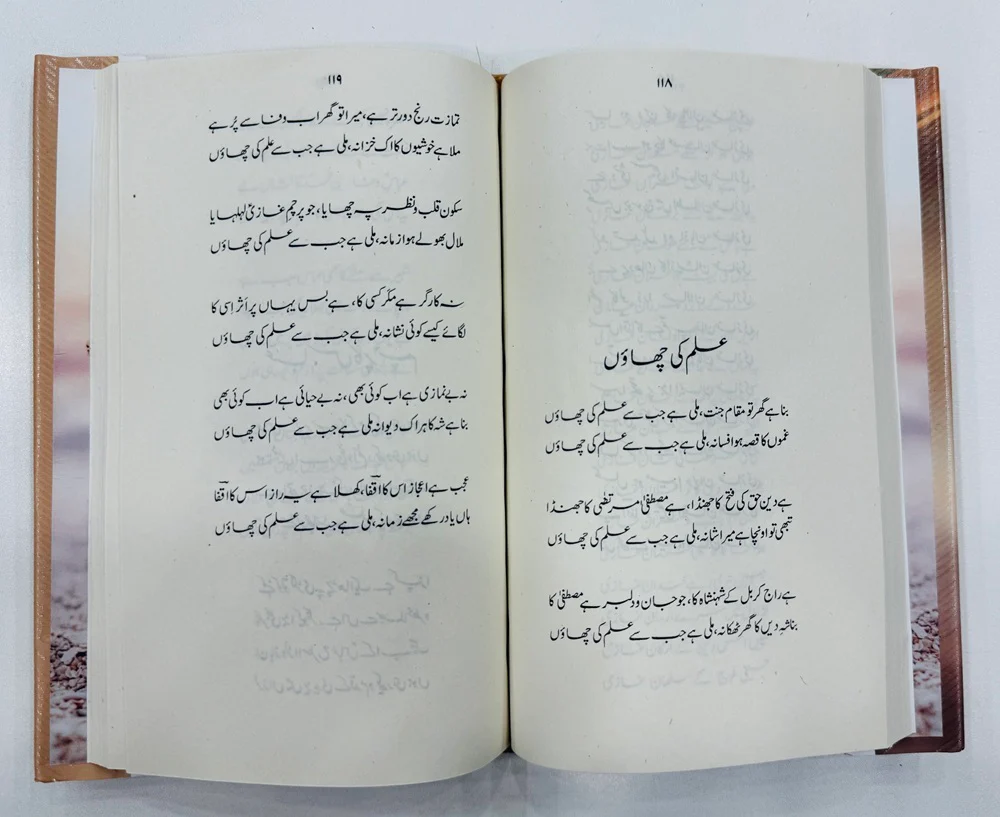 ۱۱۸
علم کی چھاؤں
بنا ہے گھر تو مقام جنت، ملی ہے جب سے علم کی چھاؤں
غموں کا قصہ ہوا فسانہ، ملی ہے جب سے علم کی چھاؤں
ہے دین حق کی فتح کا جھنڈا، ہے مصطفیٰؐ مرتضٰی کا جھنڈا
تبھی تو اونچا ہے میرا شانہ، ملی ہے جب سے علم کی چھاؤں
ہے راج کربل کے شہنشاہ کا، جو جان و دلبر ہے مصطفیٰؐ کا
بنا شہِ دیں کا گھر ٹھکانہ، ملی ہے جب سے علم کی چھاؤں
۱۱۹
تمازت رنج دور تر ہے، میرا تو گھر اب وفا سے پُر ہے
ملا ہے خوشیوں کا اک خزانہ، ملی ہے جب سے علم کی چھاؤں
سکون قلب و نظر پہ چھایا، جو پرچمِ غازیؑ لہلہایا
ملال بھولے ہوا زمانہ، ملی ہے جب سے علم کی چھاؤں
نہ کارگر ہے مکر کسی کا، ہے بس یہاں پر اَثر اِسی کا
لگائے کیسے کوئی نشانہ، ملی ہے جب سے علم کی چھاؤں
نہ بے نمازی ہے اب کوئی بھی، نہ بے حیائی ہے اب کوئی بھی
بنا ہے شہ کا ہر اک دیوانہ ملی ہے جب سے علم کی چھاؤں
عجب ہے اعجاز اس کا اقفا، کھلا ہے یہ راز اس کا اقفا
ہاں یاد رکھے مجھے زمانہ، ملی ہے جب سے علم کی چھاؤں